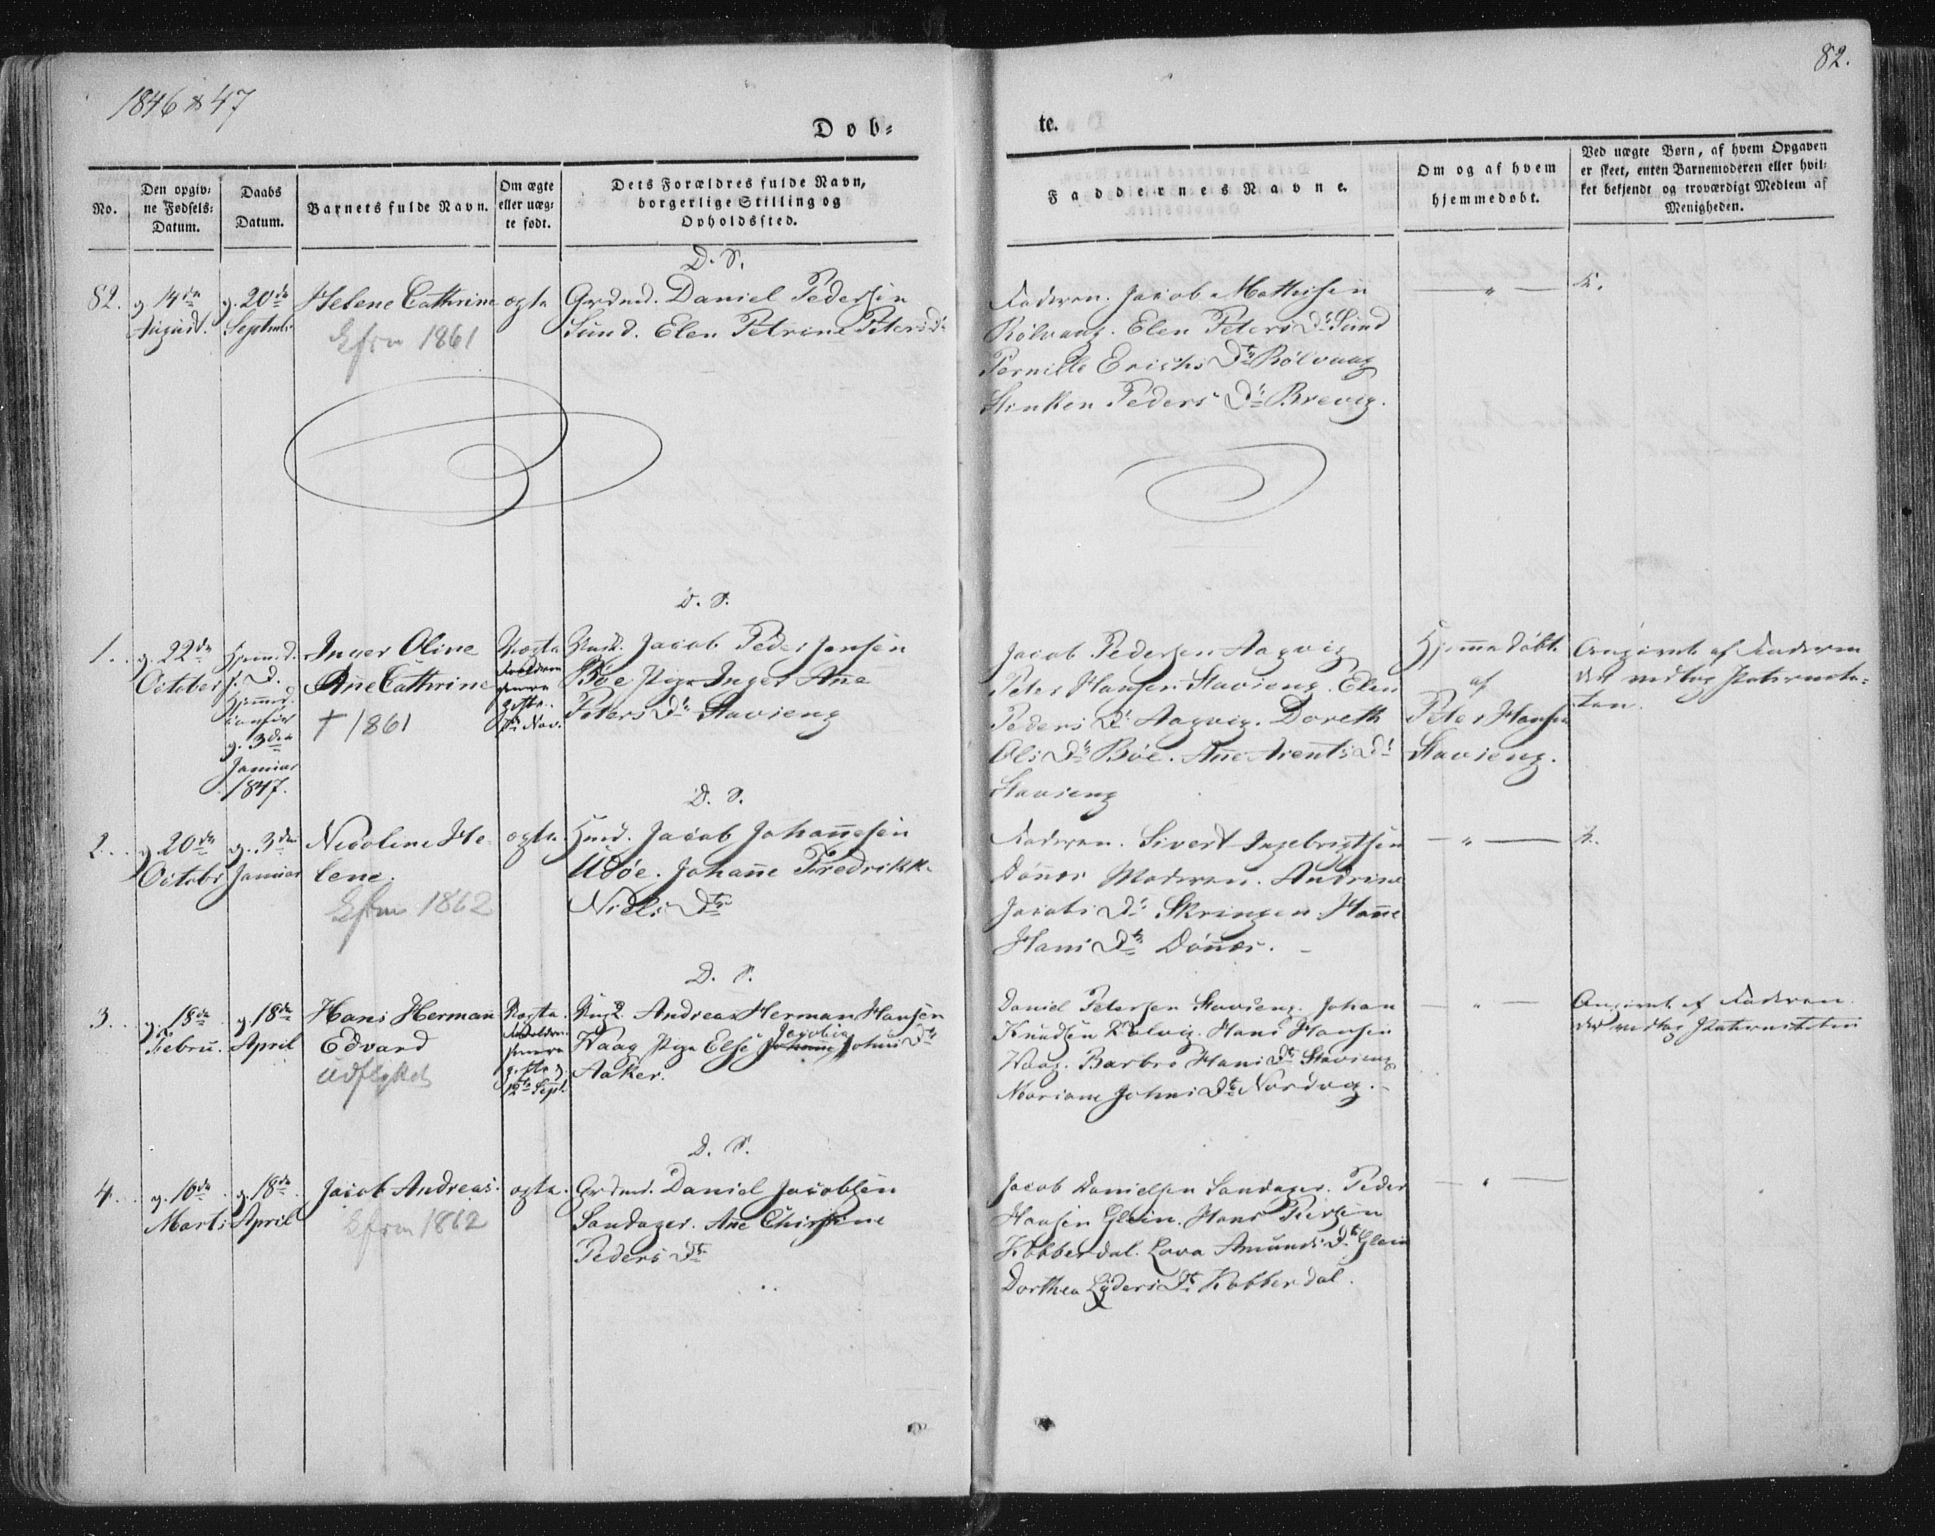 1846 & 47
82.
Døb-
te.
No.
Den opgiv-
ne Fødsels-
Datum.
Daabs
Datum.
Barnets fulde Navn.
Om ægte
eller uæg-
te født.
Dets Forældres fulde Navn,
borgerlige Stilling og
Opholdssted.
Faddernes Navne.
Om og af hvem
hjemmedøbt.
Ved uægte Børn, af hvem Opgaven
er skeet, enten Barnemoderen eller hvil-
ket bekjendt og troværdigt Medlem af
Menigheden.
D. S.
82. 14de
August.
20de
Septmb:
Helene Cathrine
1861
ægte
Grdmd. Daniel Pedersen
Sund. Elen Petrine Peters Dr
Faderen. Jacob Mathisen
Rölvaag. Elen Peters Dr Sund
Pernille Erichs Dtr Rölvaag
Stinken Peders Dr Brevig.
D. S.
1. 22de
October
Hjemd.
3die
Januar
1847.
Inger Oline
Ane Cathrine
† 1861
Uægte
Nov.
Jacob Peder Jensen
Böe Pige Inger Ane
Peters Dr Stavseng
Jacob Pedersen Aagvig
Peter Hansen Stavseng. Elen
Peders Dr Aagvig. Doreth
Ols Dr Böe. Ane Arents Dr
Stavseng
Hjemmedøbt
af
Peter Hansen
Stavseng.
Angivet af Faderen
der vedtog Paternite-
ten.
D. S.
2. 20de
Octobr
3die
Januar
Nicoline He-
lene.
1862
ægte.
Hmd. Jacob Johannesen
Udöe. Johanne Fredrikke
Niels Dtr
Faderen. Sivert Ingebrigtsen
Dönnes Moderen. Andrine
Jacobs Dr Skringen. Hanne
Hans Dtr Dönnes.
D. S.
3. 18de
Febru.
18de
April
Hans Herman
Edvard
udflyttet
Uægte.
12te Sept.
Ungk. Andreas Herman Hansen
Waag Pige Else Jacobia Johns Dtr
Aaker.
Daniel Petersen Stavseng. Johan
Knudsen Kolvig. Hans Hansen
Waag. Barbro Hans Dtr Stavseng
Mariane Johns Dtr Nordvg.
Angivet af Faderen
der vedtog Paterniteten
D. S.
4. 10de
Marts
18de
April
Jacob Andreas.
1862
ægte.
Grdmd. Daniel Jacobsen
Sandager. Ane Chirstine
Peders Dtr
Jacob Danielsen Sandager. Peder
Hansen Glein. Hans Persen
Kobberdal. Lova Amunds Dtr Glein
Dorthea Lyders Dtr Kobberdal.